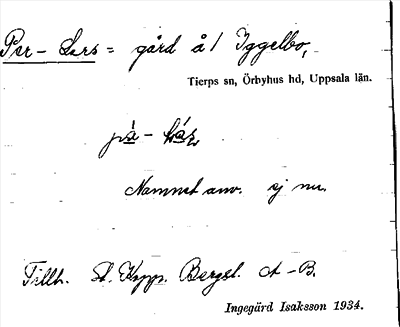 Per-Lars = gård å/ Iggelbo,
Tierps sn, Örbyhus hd, Uppsala län.
Namnet anv. ej nu.
Tillh. St. Kopp. Bergsl. A-B.
Ingegärd Isaksson 1934.